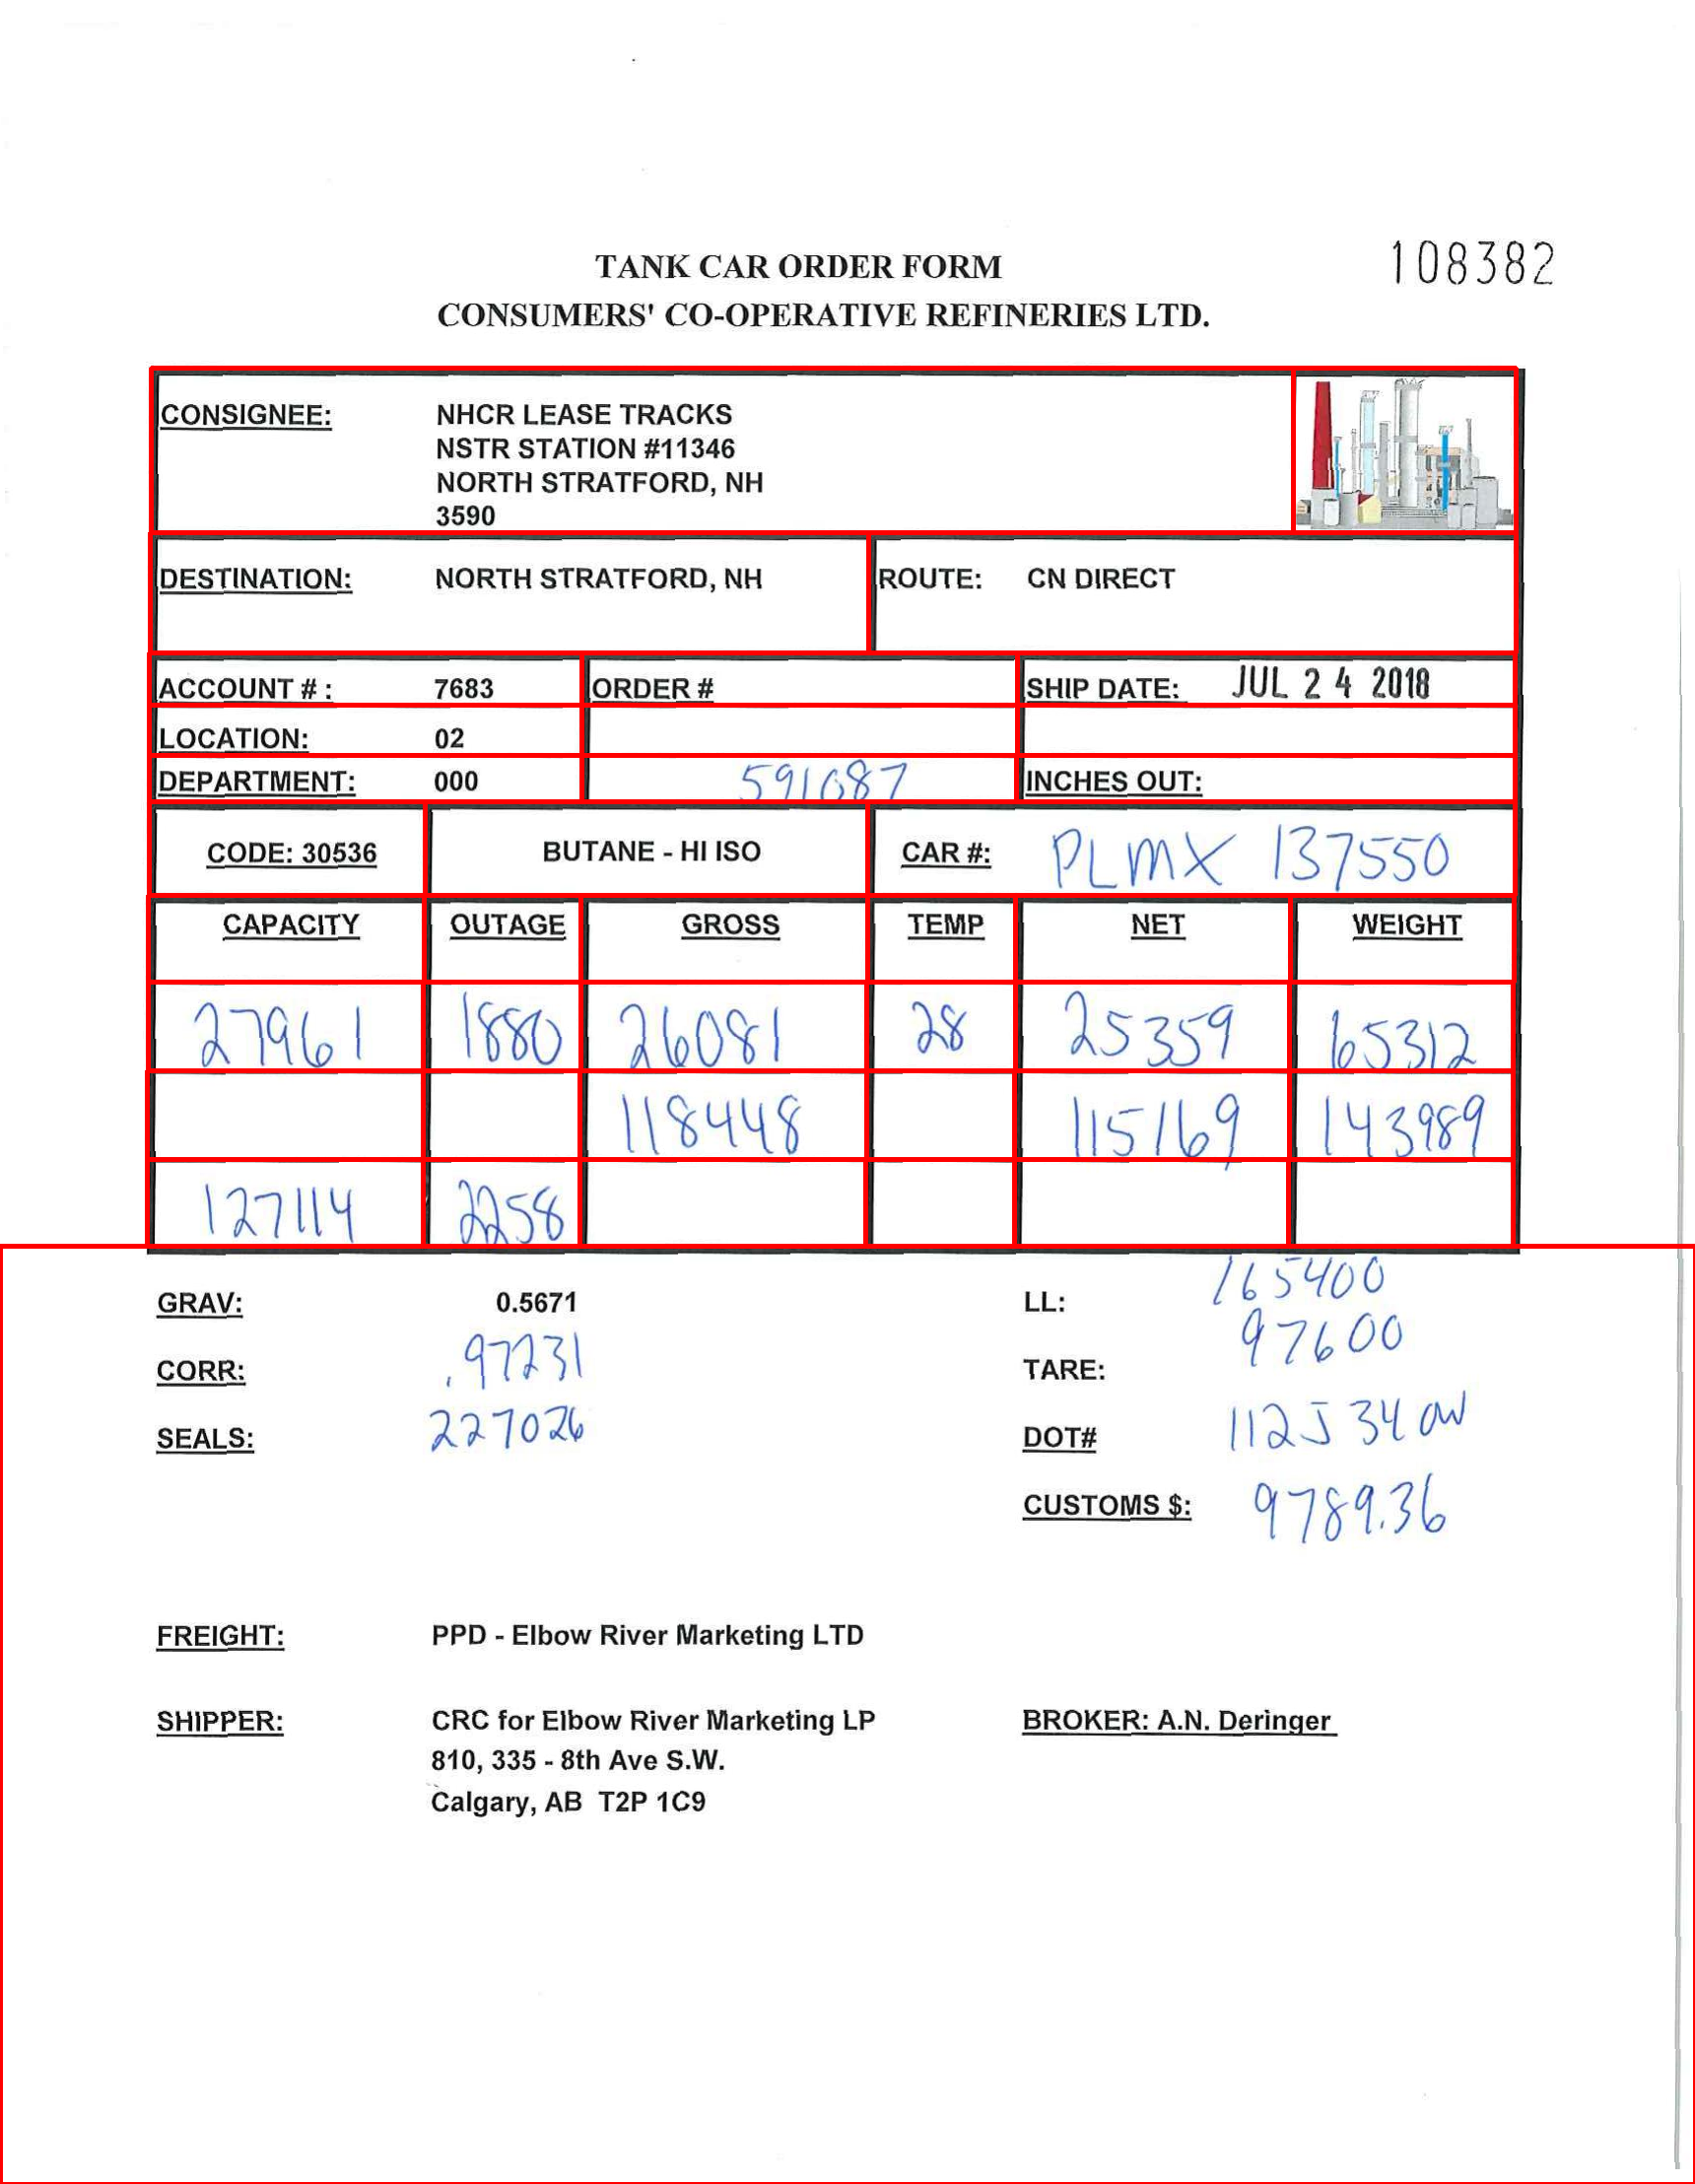 108382
TANK CAR ORDER FORM
CONSUMERS' CO-OPERATIVE REFINERIES LTD.
CONSIGNEE: NHCR LEASE TRACKS
NSTR STATION #11346
NORTH STRATFORD, NH
3590
DESTINATION: NORTH STRATFORD, NH ROUTE: CN DIRECT
ACCOUNT # : 7683 ORDER # SHIP DATE: JUL 24 2018
LOCATION: 02
DEPARTMENT: 000 591087 INCHES OUT:
CODE: 30536 BUTANE - HI ISO CAR #: PLMX 137550
CAPACITY OUTAGE GROSS TEMP NET WEIGHT
27961 1880 26081 28 25359 65312
118448 115169 143989
127114 2258
165400
GRAV: 0.5671 LL:
97600
CORR: .97231 TARE:
SEALS: 227026 DOT# 112J 340W
CUSTOMS $: 9789.36
FREIGHT: PPD - Elbow River Marketing LTD
SHIPPER: CRC for Elbow River Marketing LP BROKER: A.N. Deringer
810, 335 - 8th Ave S.W.
Calgary, AB T2P 1C9